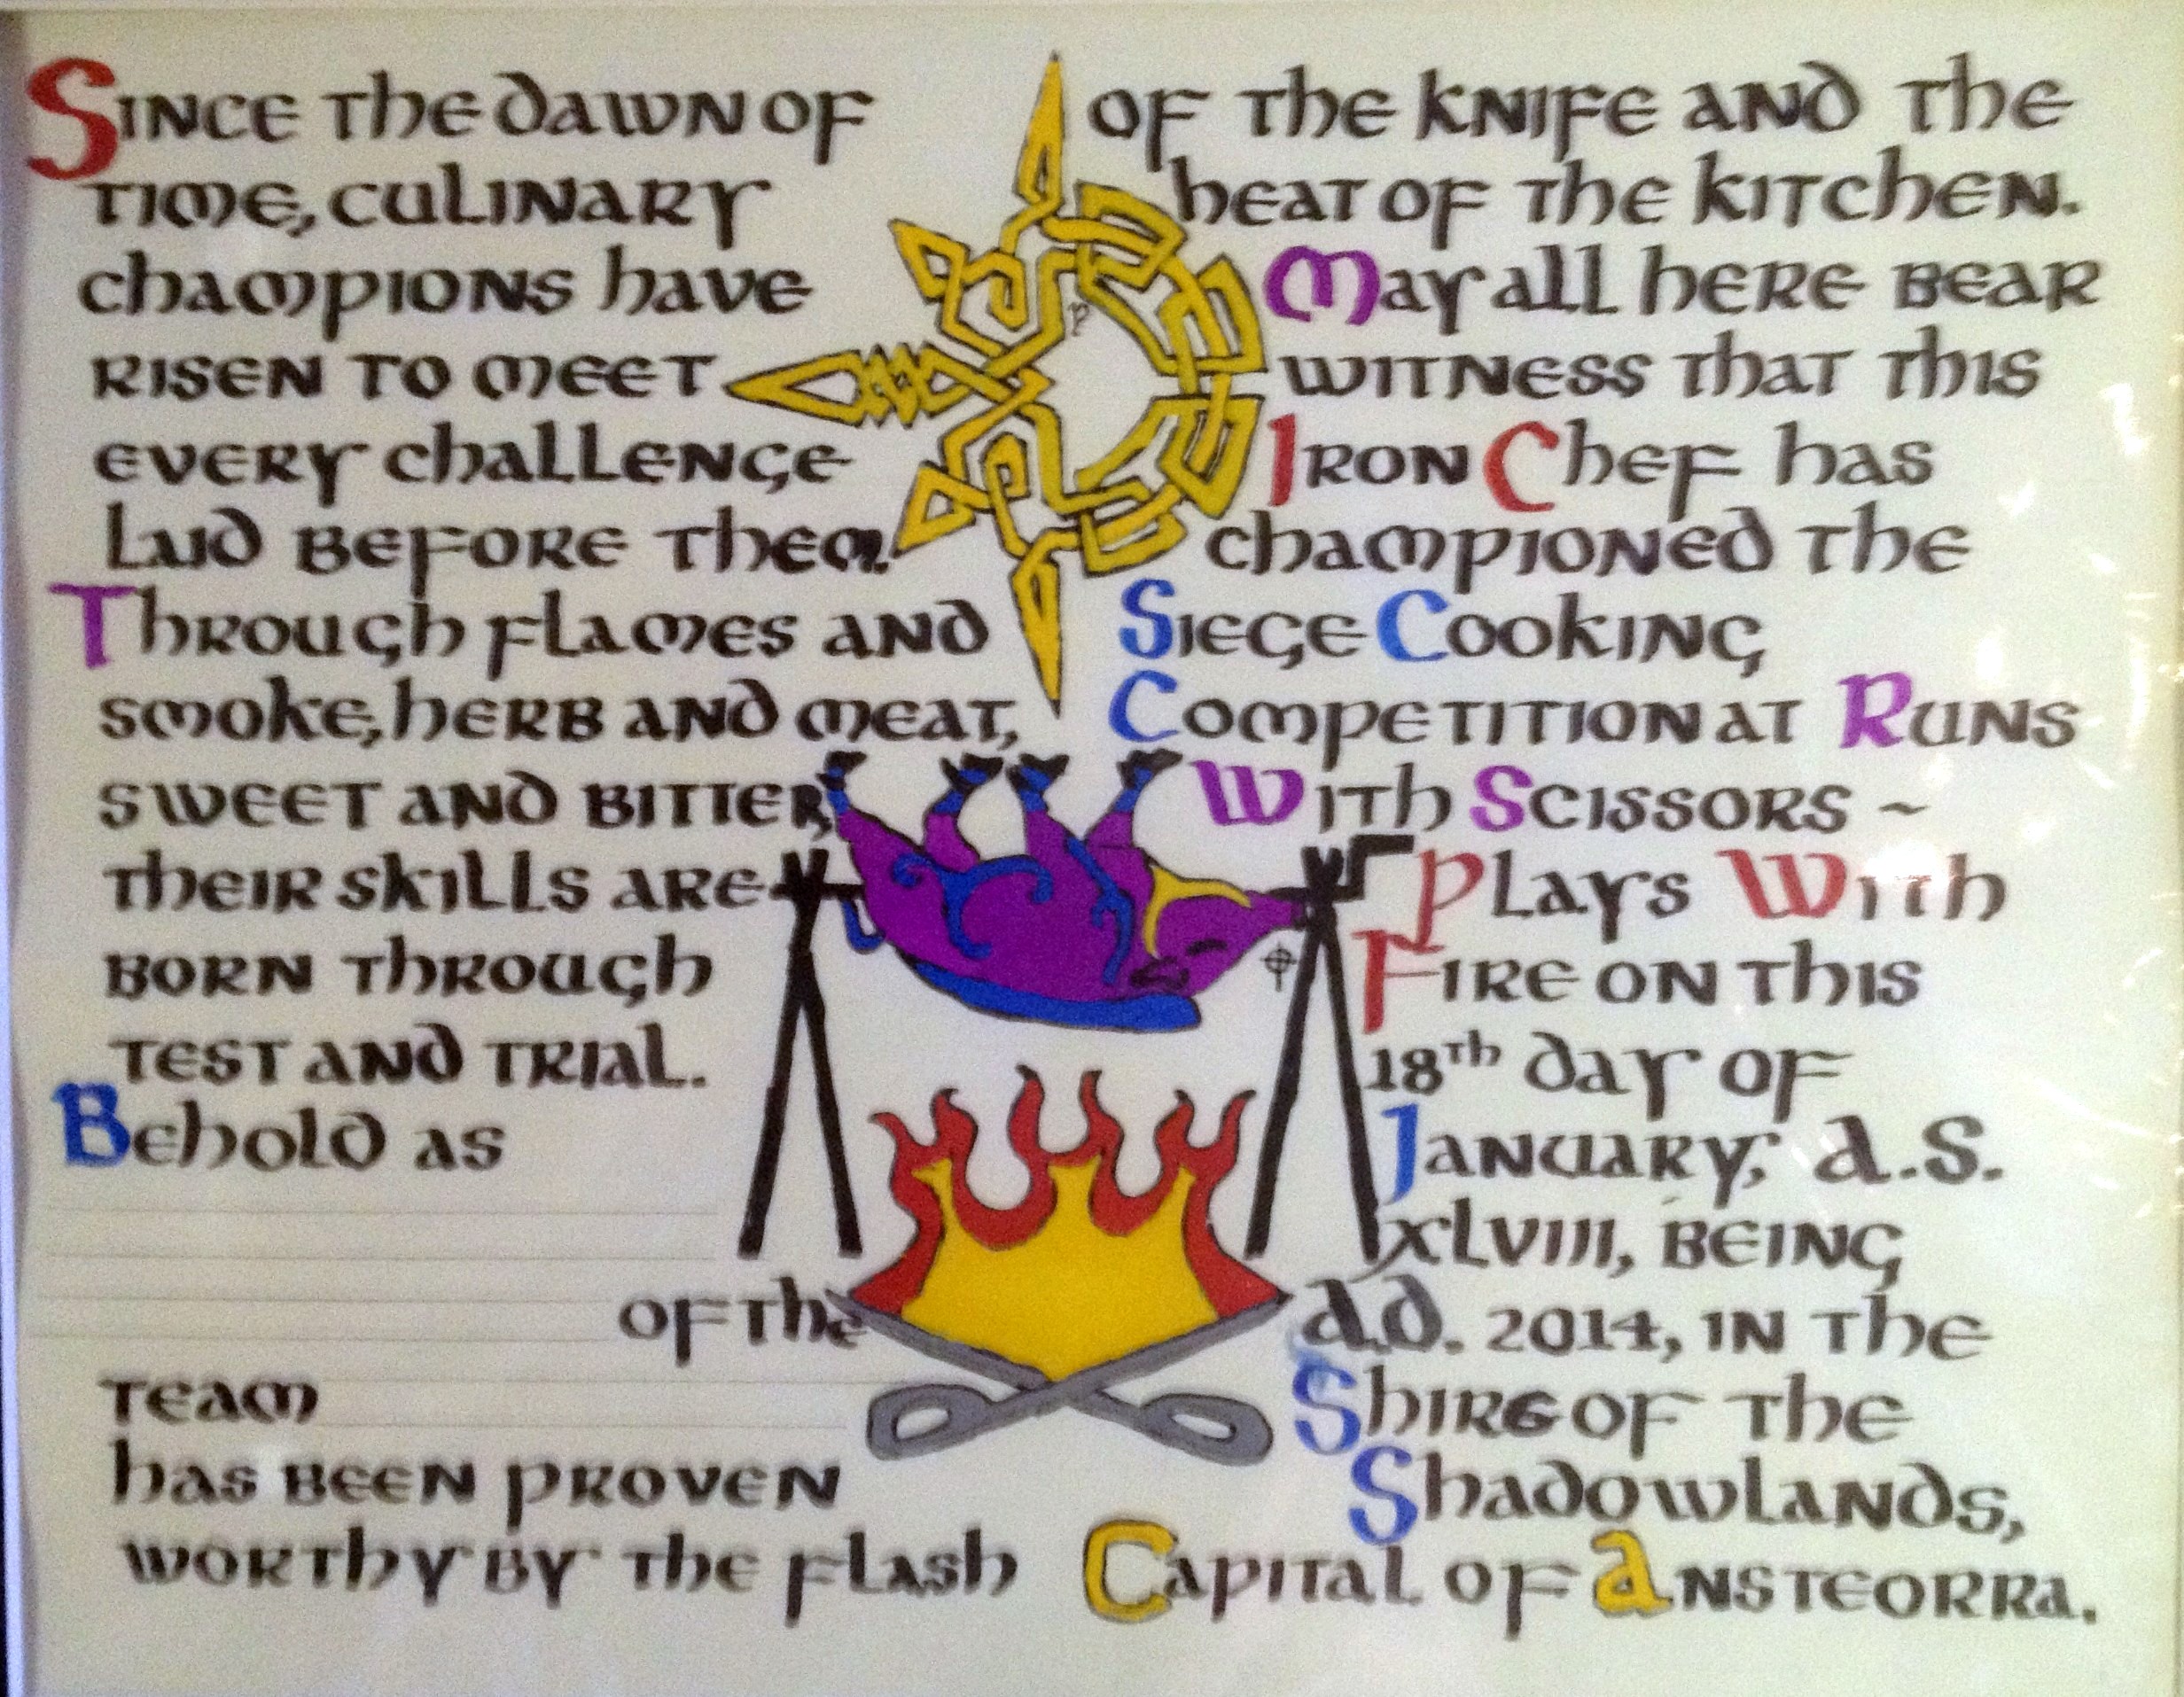 Since the dawn of
time, culinary
champions have
risen to meet
every challenge
laid before them.
Through flames and
smoke, herb and meat,
sweet and bitter,
their skills are
born through
test and trial.
Behold as
of the
team
has been proven
worthy by the flash
of the knife and the
heat of the kitchen.
May all here bear
witness that this
Iron Chef has
championed the
Siege Cooking
Competition at Runs
With Scissors ~
Plays With
Fire on this
18th day of
January, A.S.
XLVIII, being
A.D. 2014, in the
Shire of the
Shadowlands,
Capital of Ansteorra.